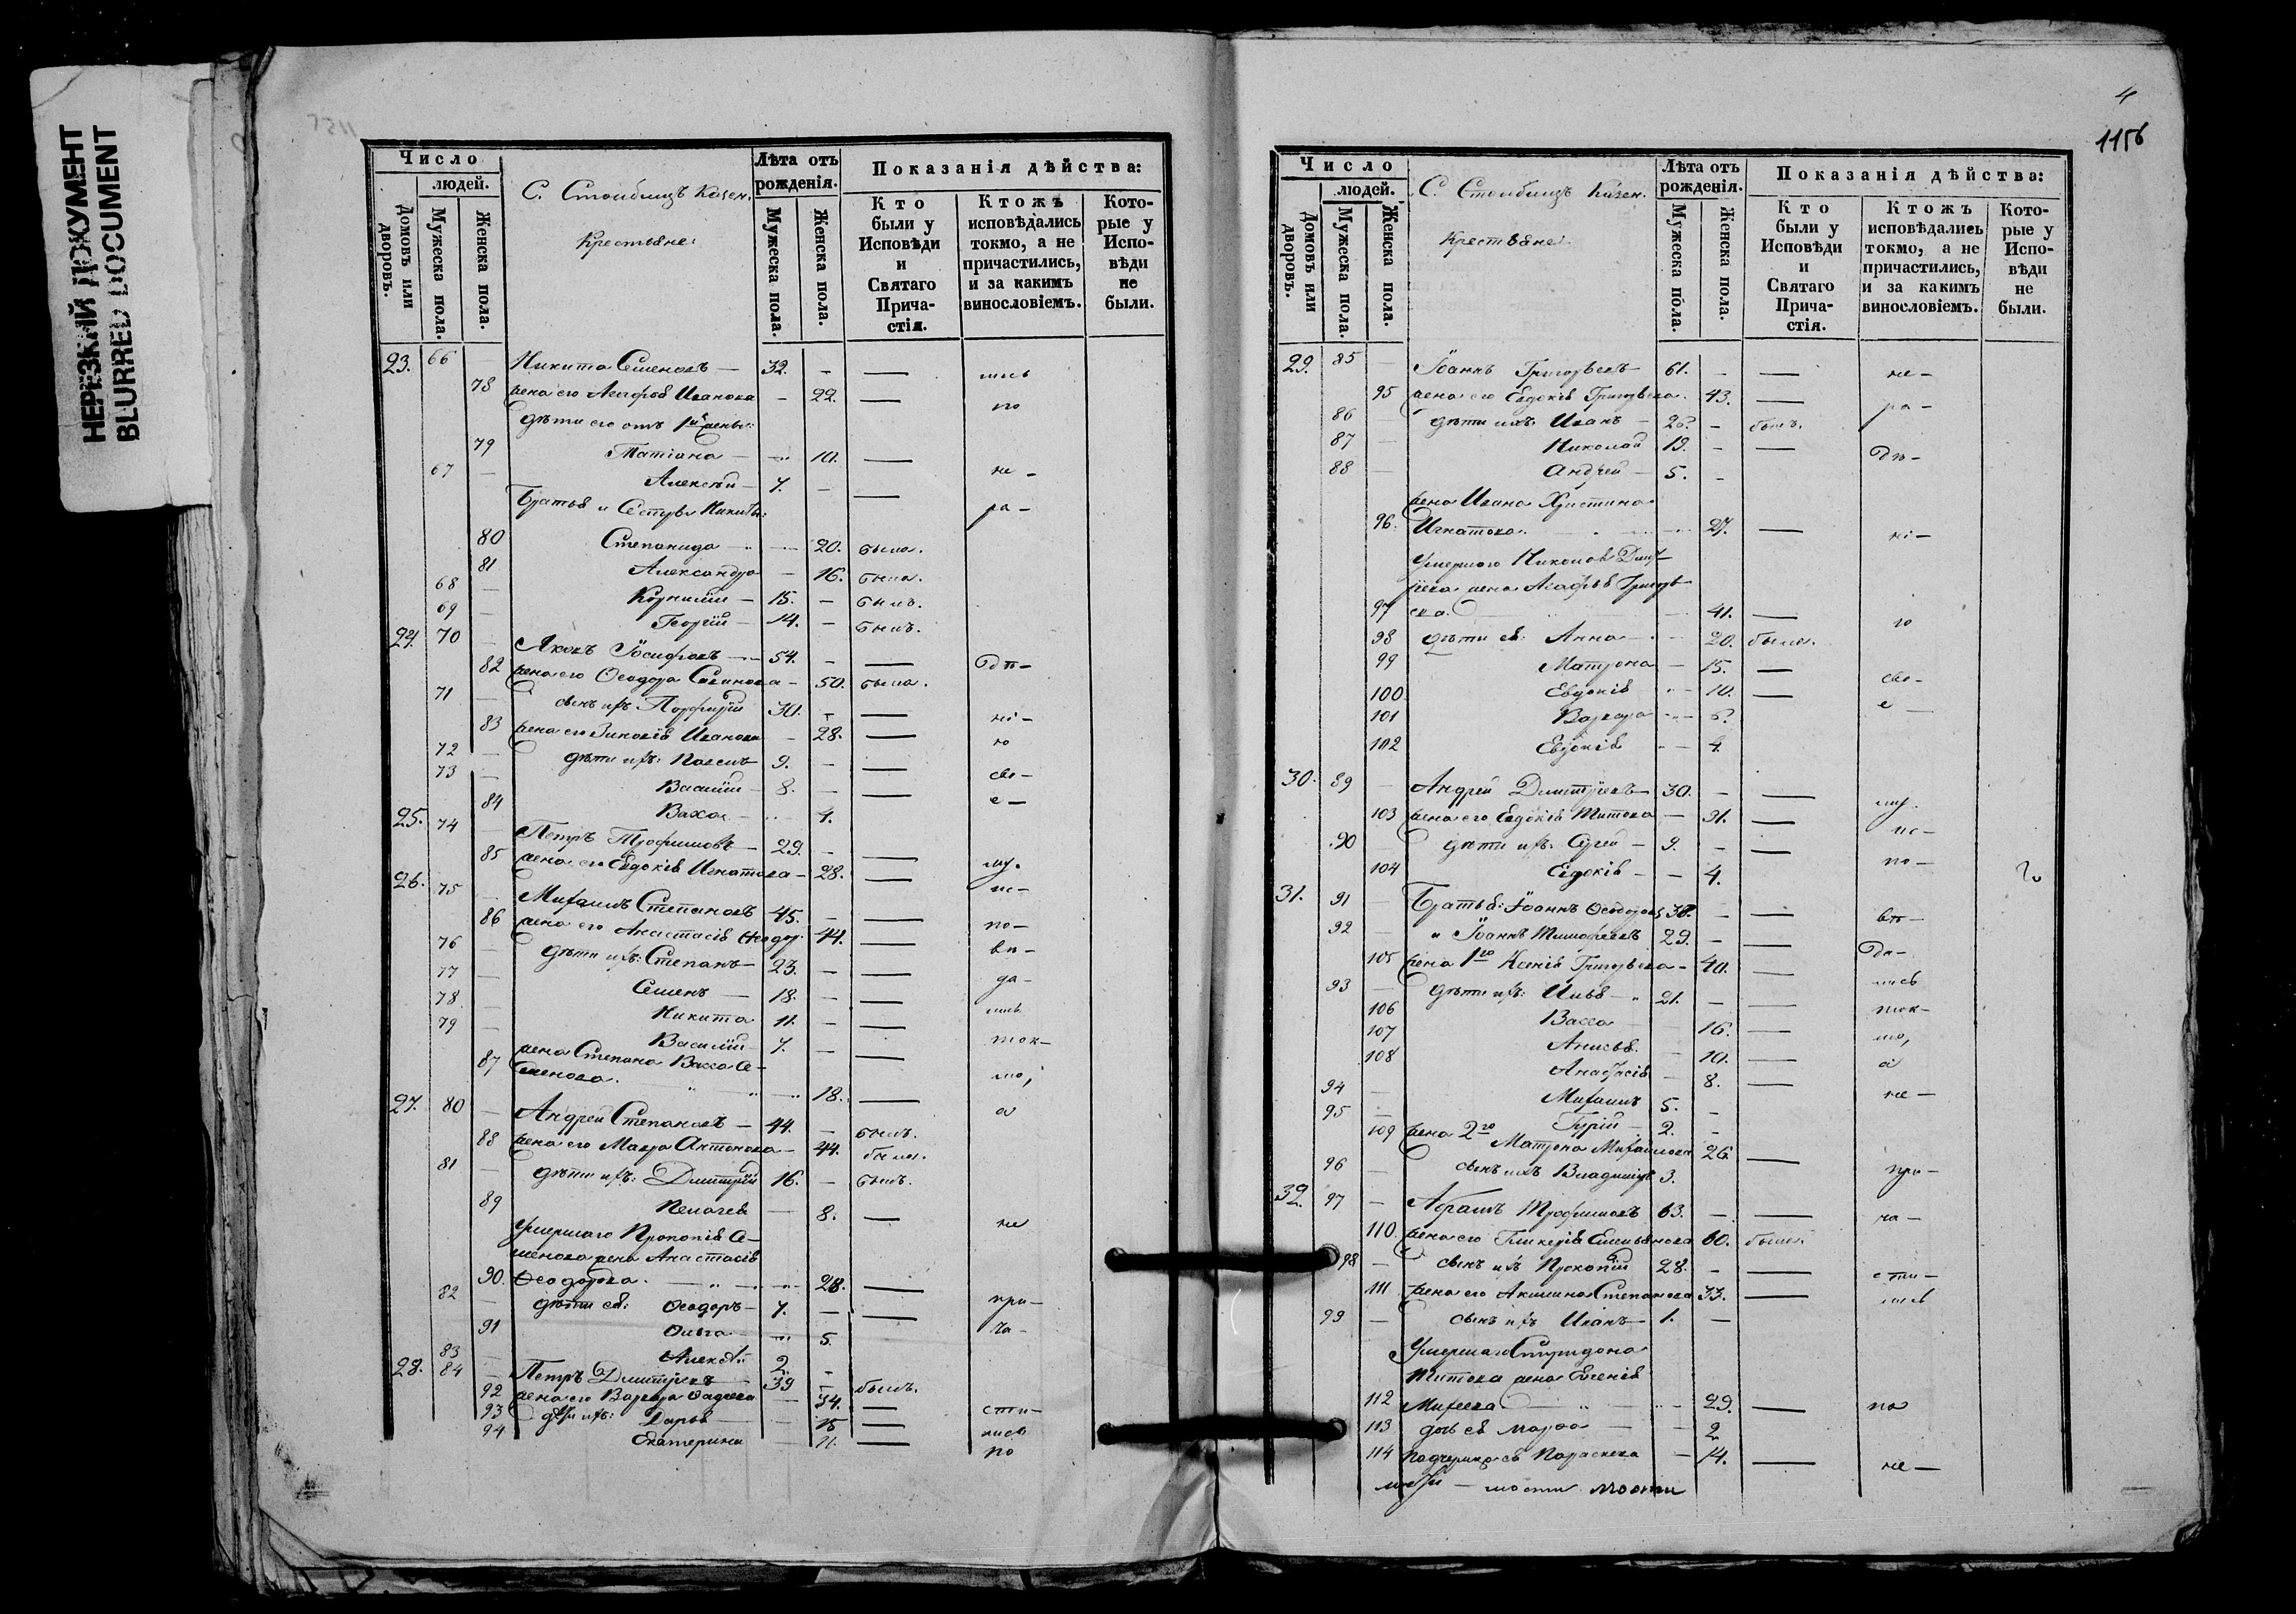 НЕРЕЗКИЙ ДОКУМЕНТ
BLURRED DOCUMENT
Число
людей.
Домовъ или дворовъ.
Мужеска пола.
Женска пола.
С. Столбищъ Казен.
Крестьяне:
Лѣта отъ рожденія.
Мужеска пола.
Женска пола.
Показанія дѣйства:
Кто были у Исповѣди и Святаго Прича-стія.
Ктожъ исповѣдались токмо, а не причастились, и за какимъ винословіемъ.
Кото-рые у Испо-вѣди не были.
23. 66 — Никита Семеновъ — 32. — — лись
78 жена его Агафья Иванова — 22. — по
дѣти его отъ 1й жены:
79 Татіана — 10. — не —
67 — Алексѣй — 7. — —
Братья и Сестры Никиты: ра —
80 Степанида — 20. была.
81 Александра — 16. была.
68 — Корнилій — 15. — былъ.
69 — Георгій — 14. — былъ.
24. 70 — Яковъ Іосифовъ — 54. — — Одѣ —
82 жена его Ѳеодора Саввинова — 50. была.
71 — сынъ ихъ Порфирій 30. — — ні —
83 жена его Зиновія Иванова — 28. — ю
72 — дѣти ихъ: Павелъ 9. — — сво —
73 — Василій — 8. — — е —
84 Васса — 4.
25. 74 — Петръ Трофимовъ — 29. — — му.
85 жена его Евдокія Игнатова — 28. — ис —
26. 75 — Михаилъ Степановъ 45. — — по —
86 жена его Анастасія Ѳеодор. 44. — вѣ —
76 — дѣти ихъ: Степанъ — 23. — — да —
77 — Семенъ — 18. — — лись
78 — Никита 11. — — ток —
79 — Василій — 7. — — мо,
87 жена Степана Васса Се-
менова. — 18. — а
27. 80 — Андрей Степановъ — 44. — былъ.
88 жена его Мавра Антонова — 44. была.
81 — дѣти ихъ: Димитрій 16. — былъ.
89 Пелагея — 8. — не
Умершаго Прокопія Се-
менова жена Анастасія
90. Ѳеодорова. — 28. — при —
82 — дѣти ея: Ѳеодоръ — 7. — — ча —
91 Ольга — 5.
83 — Алексѣй 2. —
28. 84 — Петръ Димитріевъ 39 — былъ.
92 жена его Варвара — 34. — сти —
93 дѣти ихъ: Дарья — 15 — лись
94 Екатерина — 11. — по
4
1156
Число
людей.
Домовъ или дворовъ.
Мужеска пола.
Женска пола.
С. Столбищъ Казен.
Крестьяне:
Лѣта отъ рожденія.
Мужеска пола.
Женска пола.
Показанія дѣйства:
Кто были у Исповѣди и Святаго Прича-стія.
Ктожъ исповѣдались токмо, а не причастились, и за какимъ винословіемъ.
Кото-рые у Испо-вѣди не были.
29. 85 — Іоаннъ Григорьевъ — 61. — — не —
95 жена его Евдокія Григорьева. 43. — ра —
86 дѣти ихъ: Иванъ — — былъ.
87 — Николай 19. — — дѣ —
88 — Андрей — 5. —
жена Ивана Христина
96. Игнатова. — 27. — ні —
Умершаго Никонова Димит-
ріева жена Агафья Григорье-
97 ва. — 41. — ю
98 дѣти ея: Анна — 20. была.
99 Матрона — 15. — сво —
100 Евдокія — 10. — е —
101 Варвара — 6.
102 Евдокія — 4.
30. 89 — Андрей Димитріевъ — 30. — — му.
103 жена его Евдокія Титова — 31. — ис —
90 дѣти ихъ: Сергѣй — 9. — — по —
104 Евдокія — — 4.
31. 91 — Братья: Іоаннъ Ѳеодоровъ 38. — — вѣ —
92 — и Іоаннъ Тимофеевъ 29. — — Да —
105 жена 1го Ксенія Григорьева — 40. — лись
93 — дѣти ихъ: Илья — 21. — — ток —
106 Васса — 16. — мо,
107 Анисья. — 10. — а
108 Анастасія — 8. — не —
94 — Михаилъ 5. —
95 — Гурій — 2. —
109 жена 2го Матрона Михаилова 26. — при —
96 — сынъ ихъ Владиміръ 3.
32. 97 — Абрамъ Трофимовъ 63. — — ча —
110. жена его Гликерія Емельянова 60. была.
98 — сынъ ихъ Прокопій 28. — — сти —
111 жена его Акилина Степанова 33. — лись
99 — сынъ ихъ Иванъ — 1. —
Умершаго Спиридона
Титова жена Евгенія
112 Михеева — 29. — по
113 дочь ея Марѳа — 2
114 Падчерица ея Параскева — 14. — не —